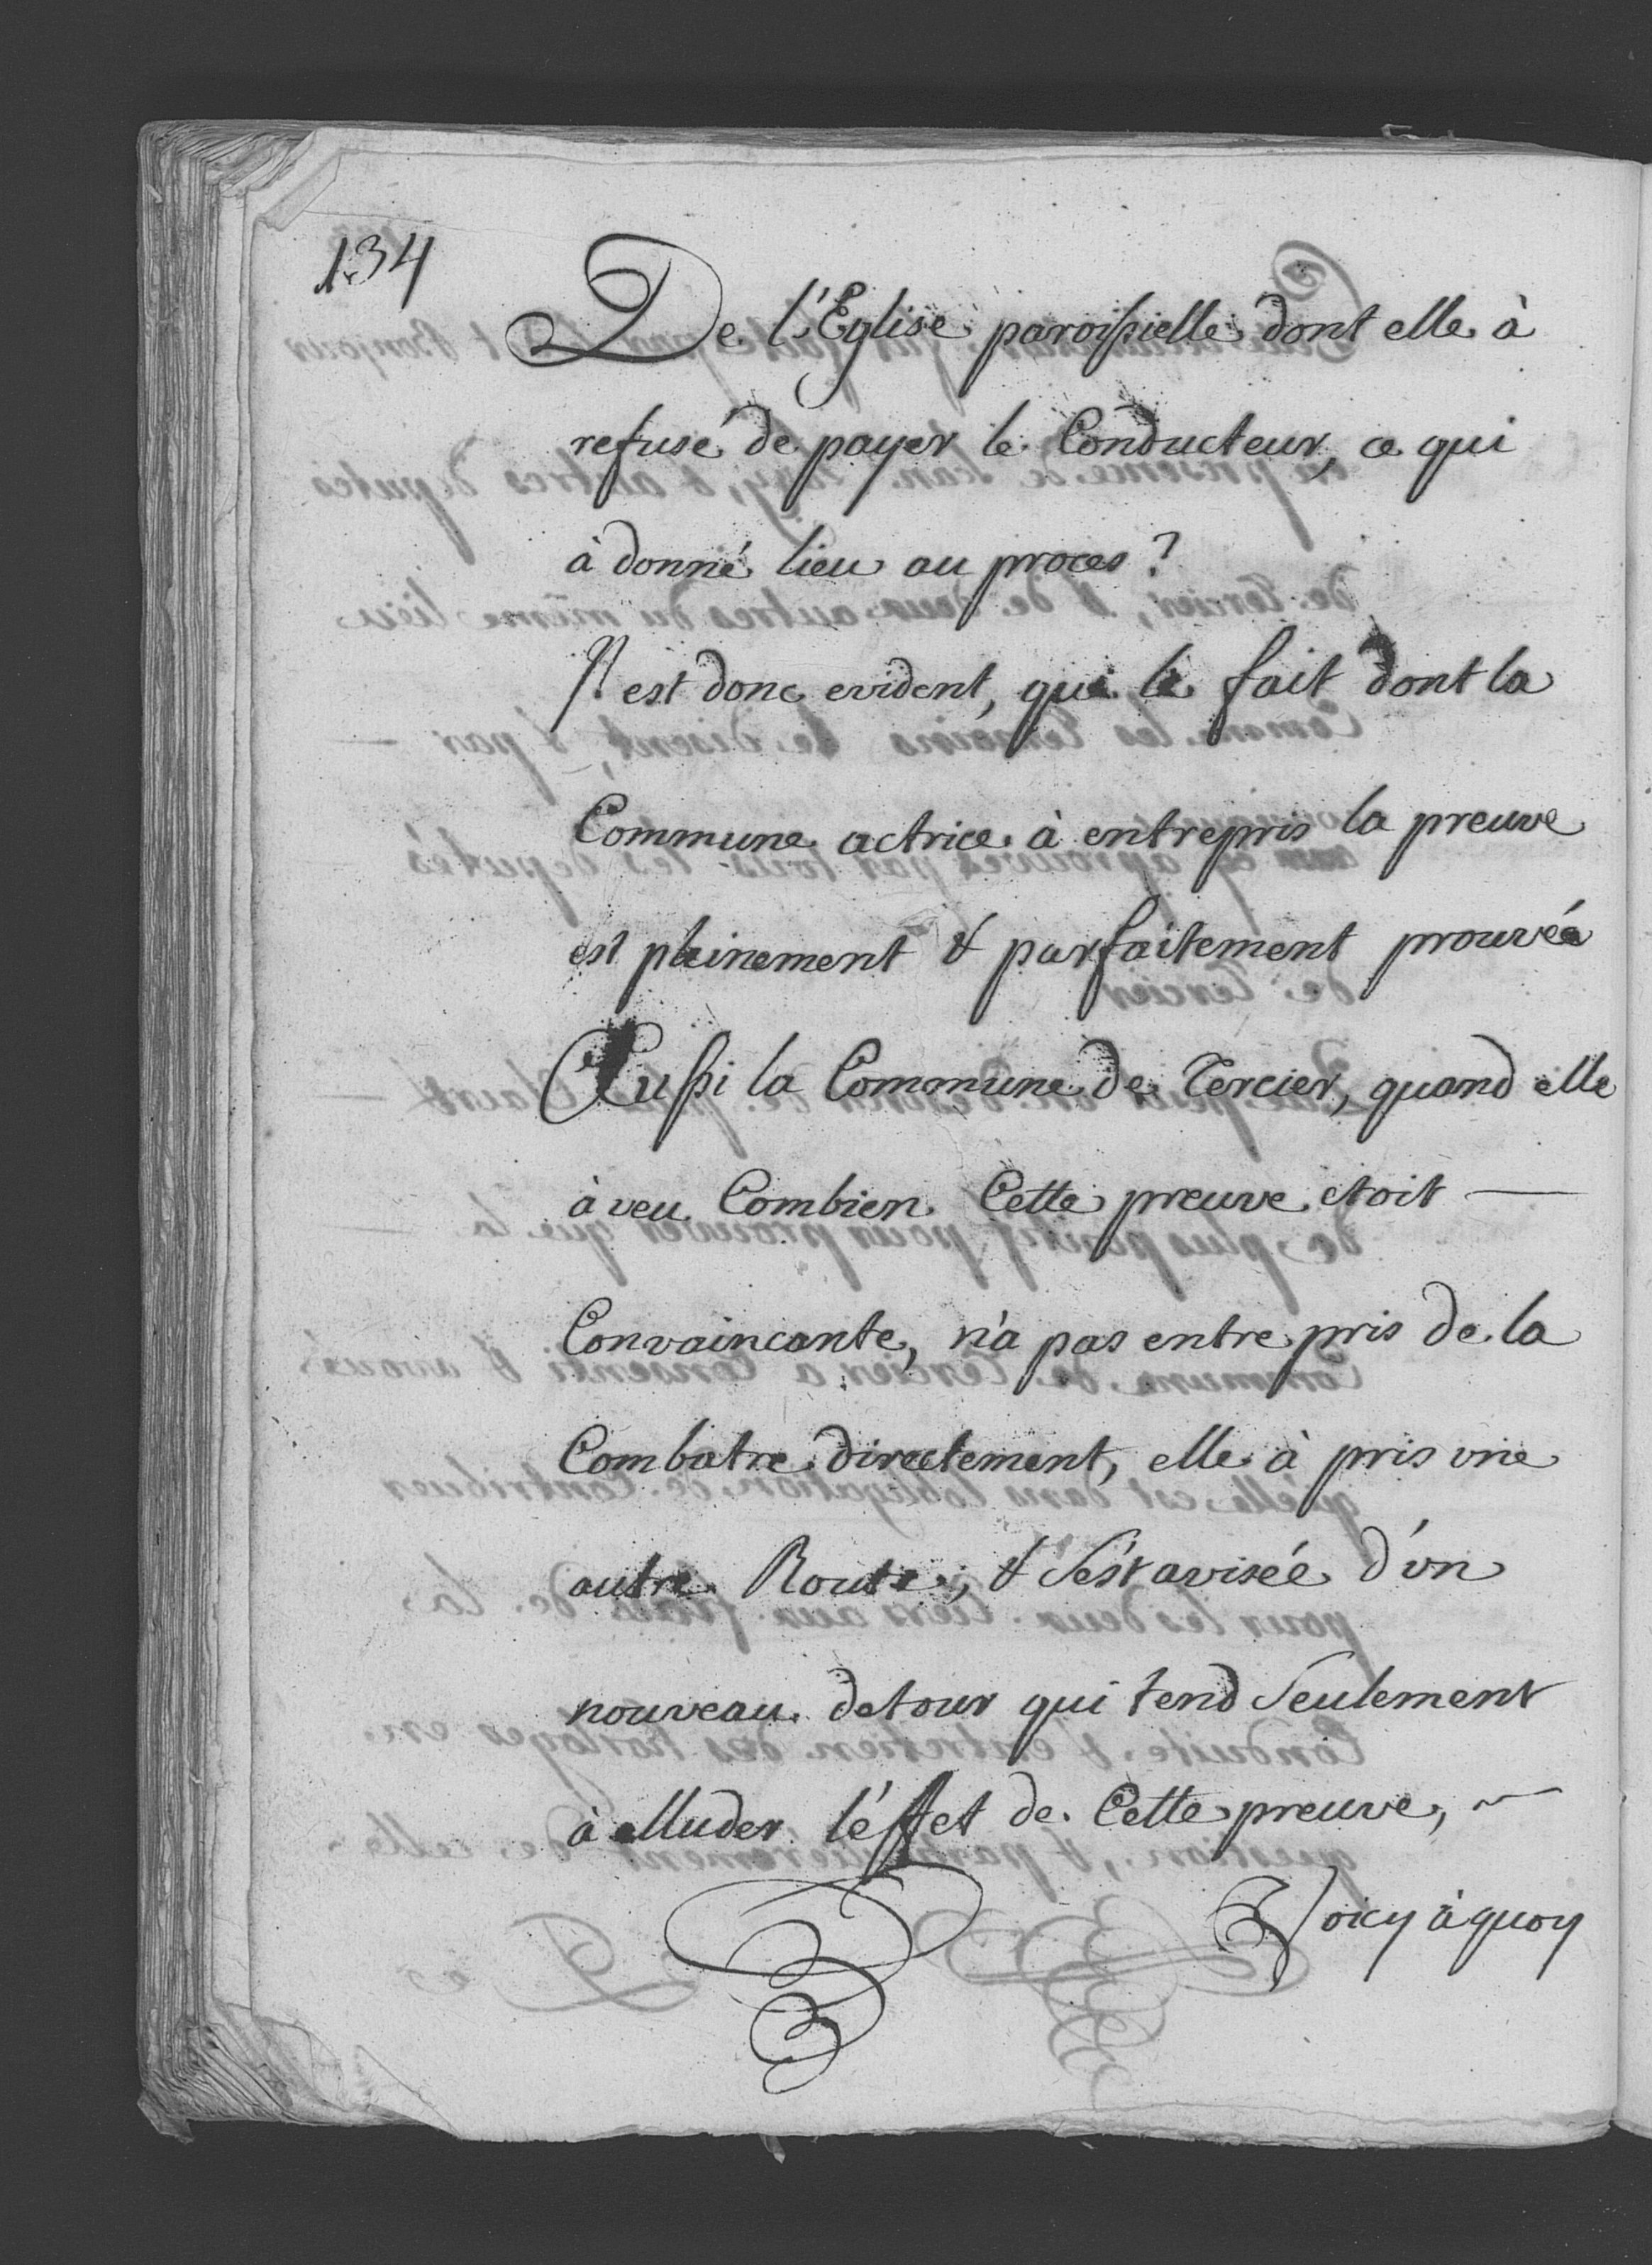 134
De l'Eglise paroissielle dont elle à
refusé de payer le Conducteur, ce qui
à donné lieu au proces ?
Il est donc evident, que le fait dont la
Commune actrice à entrepris la preuve
est pleinement & parfaitement prouvée
Aussi la Commune de Tercier, quand elle
à veu Combien Cette preuve etoit —
Convaincante, n'a pas entrepris de la
Combatre directement, elle à pris vne
autre Route, & S'est avisée d'vn
nouveau detour qui tend Seulement
à elluder l'éffet de Cette preuve, ~
Voicy à quoy